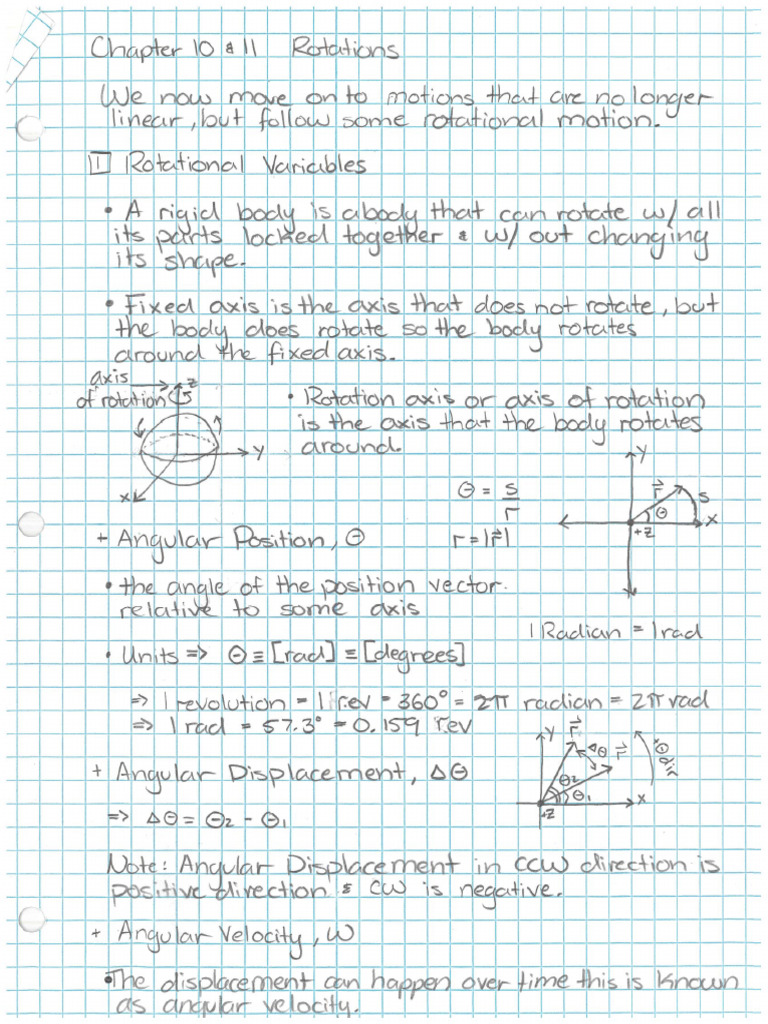 Chapter 10 & 11 Rotations
We now move on to motions that are no longer
linear, but follow some rotational motion.
1 Rotational Variables
• A rigid body is a body that can rotate w/ all
its parts locked together & w/out changing
its shape.
• Fixed axis is the axis that does not rotate, but
the body does rotate so the body rotates
around the fixed axis.
axis
of rotation
z
y
x
• Rotation axis or axis of rotation
is the axis that the body rotates
around.
θ = s/r
r = |r⃗|
y
r⃗
s
θ
x
+z
+ Angular Position, θ
• the angle of the position vector
relative to some axis
1 Radian = 1 rad
• Units => θ ≡ [rad] ≡ [degrees]
=> 1 revolution = 1 rev = 360° = 2π radian = 2π rad
=> 1 rad = 57.3° = 0.159 rev
+ Angular Displacement, Δθ
y
r⃗
Δθ
r⃗
θ2
θ1
x
+z
=> Δθ = θ2 - θ1
Note: Angular Displacement in CCW direction is
positive direction & CW is negative.
+ Angular Velocity, ω
• The displacement can happen over time this is known
as angular velocity.